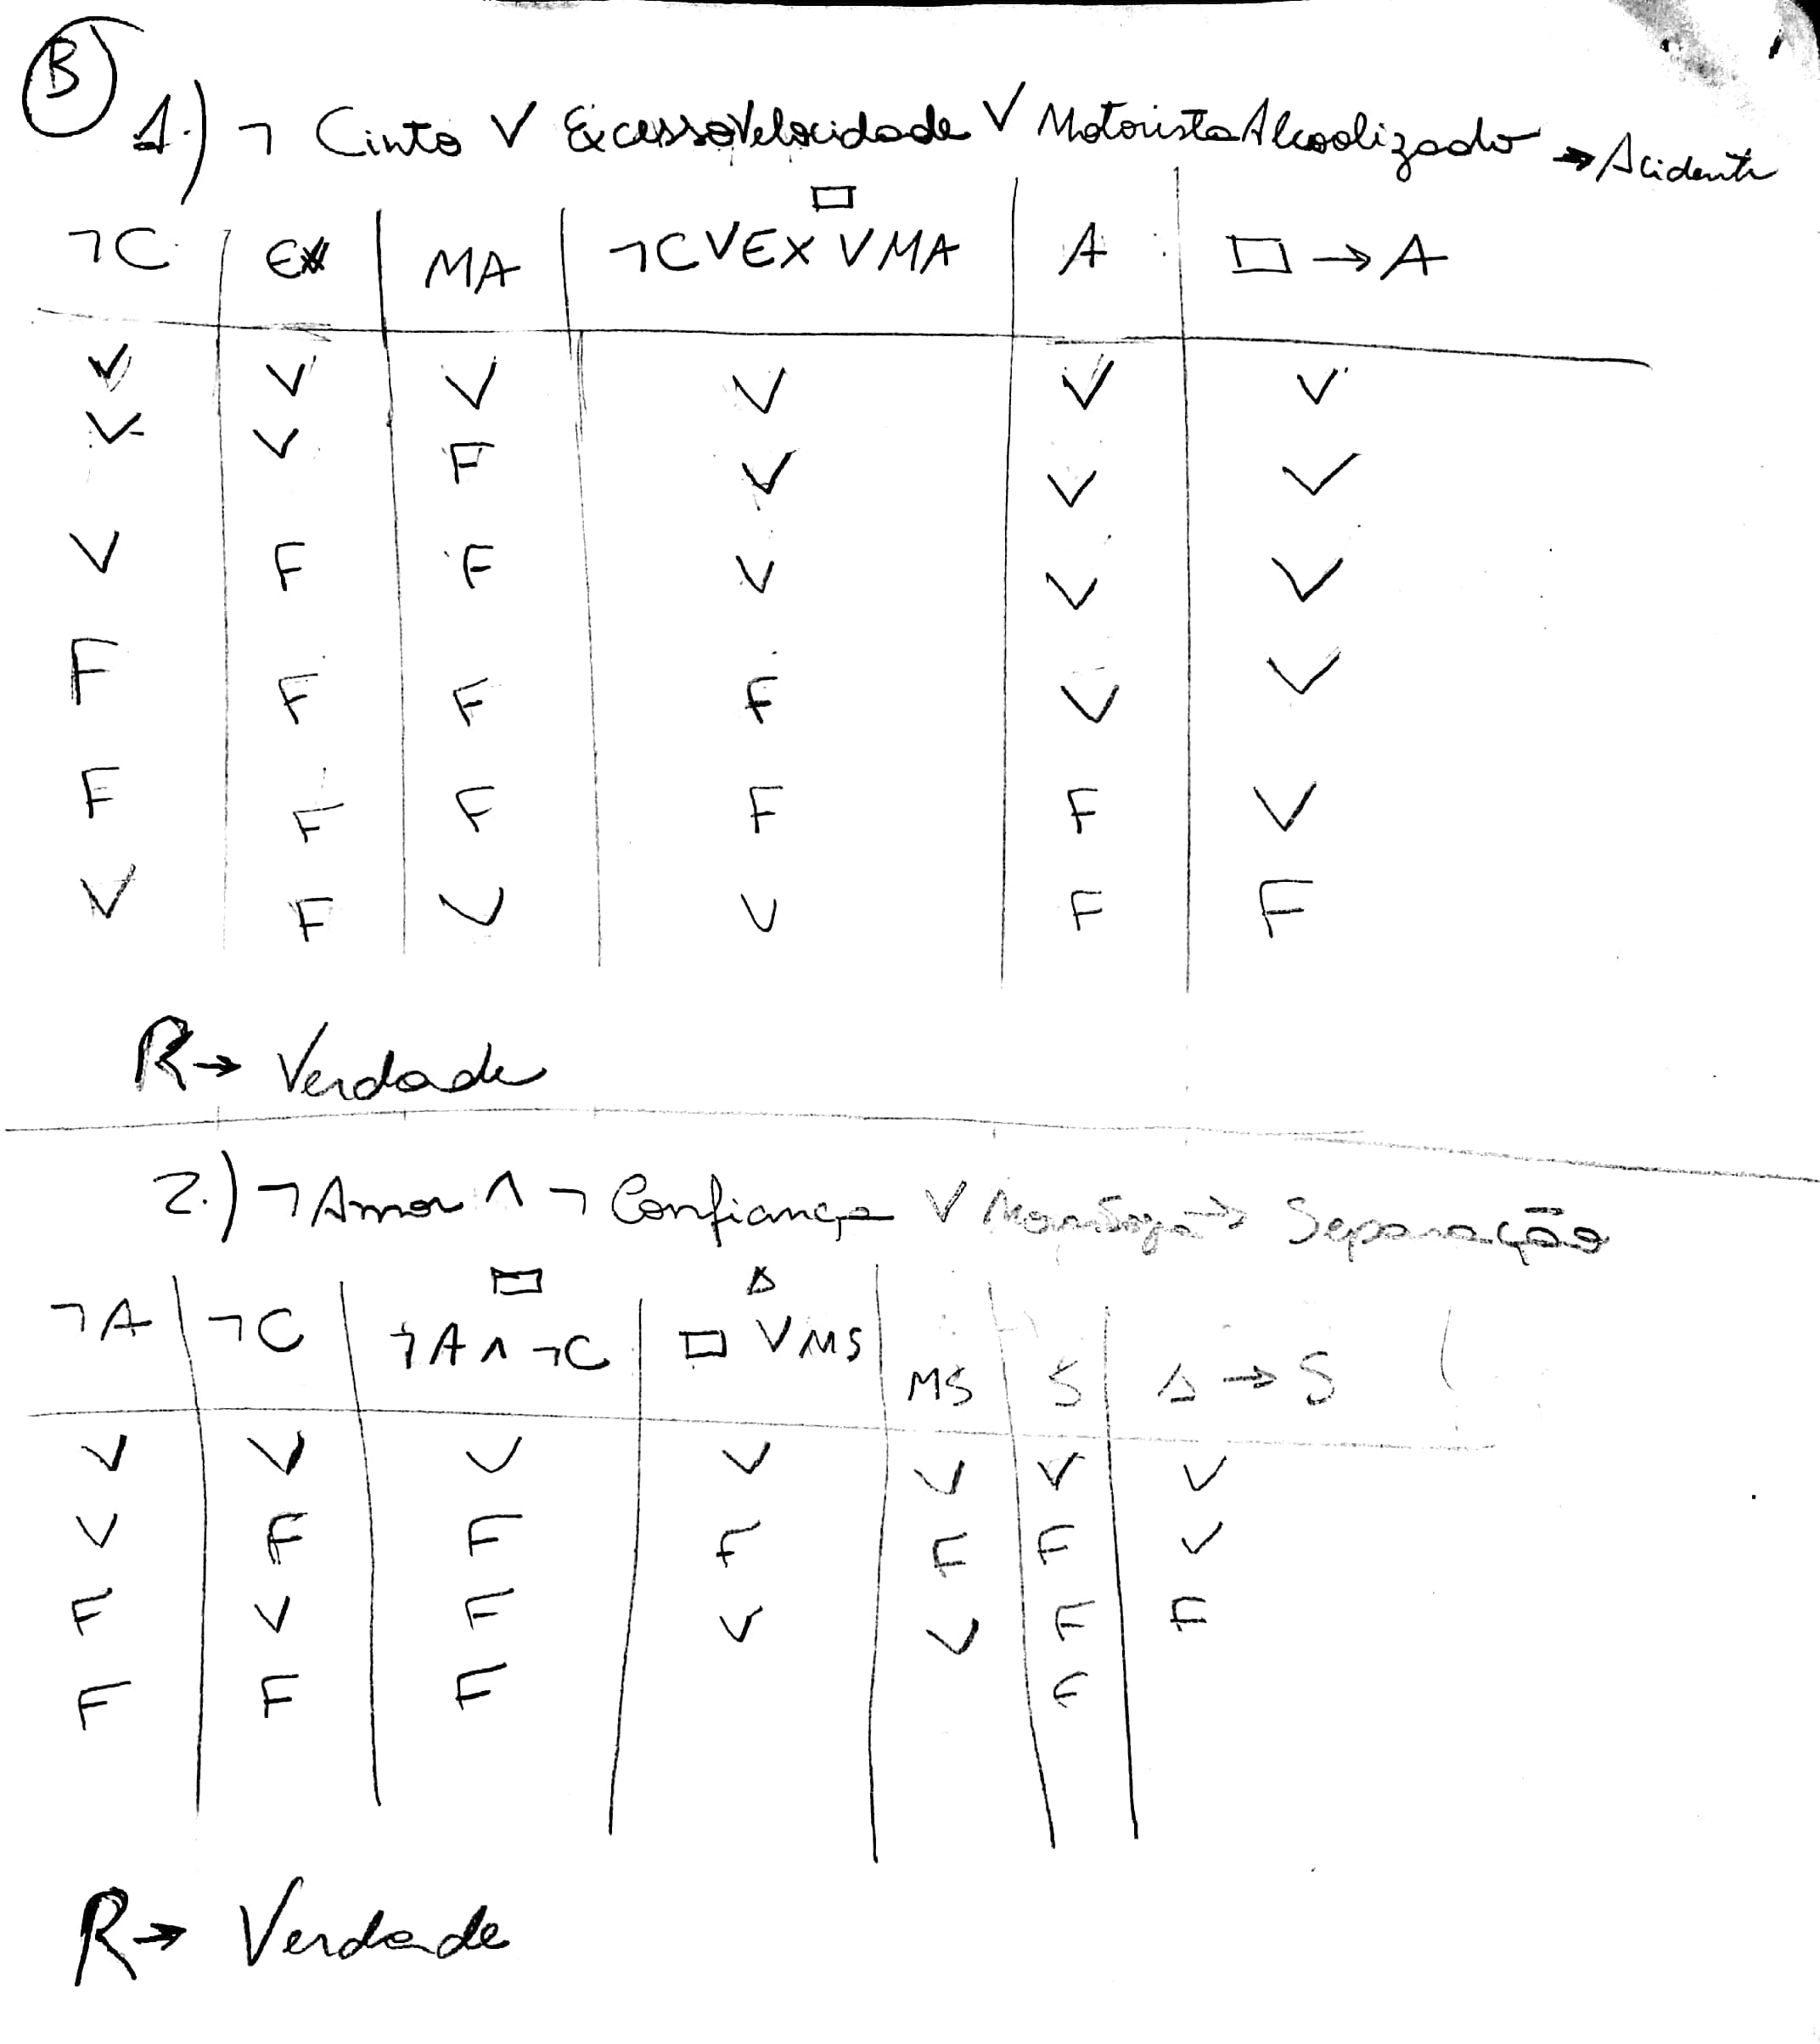 B
1.) ¬ Cinto V ExcessoVelocidade V MotoristaAlcoolizado → Acidente
□
¬C EX MA ¬C V EX V MA A □ → A
V V V V V V
V V F V V V
V F F V V V
F F F F V V
F F F F F V
V F V V F F
R → Verdade
2.) ¬ Amor ∧ ¬ Confiança V → Separação
□ Δ
¬A ¬C ¬A ∧ ¬C □ V MS MS S Δ → S
V V V V V V V
V F F F F F V
F V F V V F F
F F F F
R → Verdade